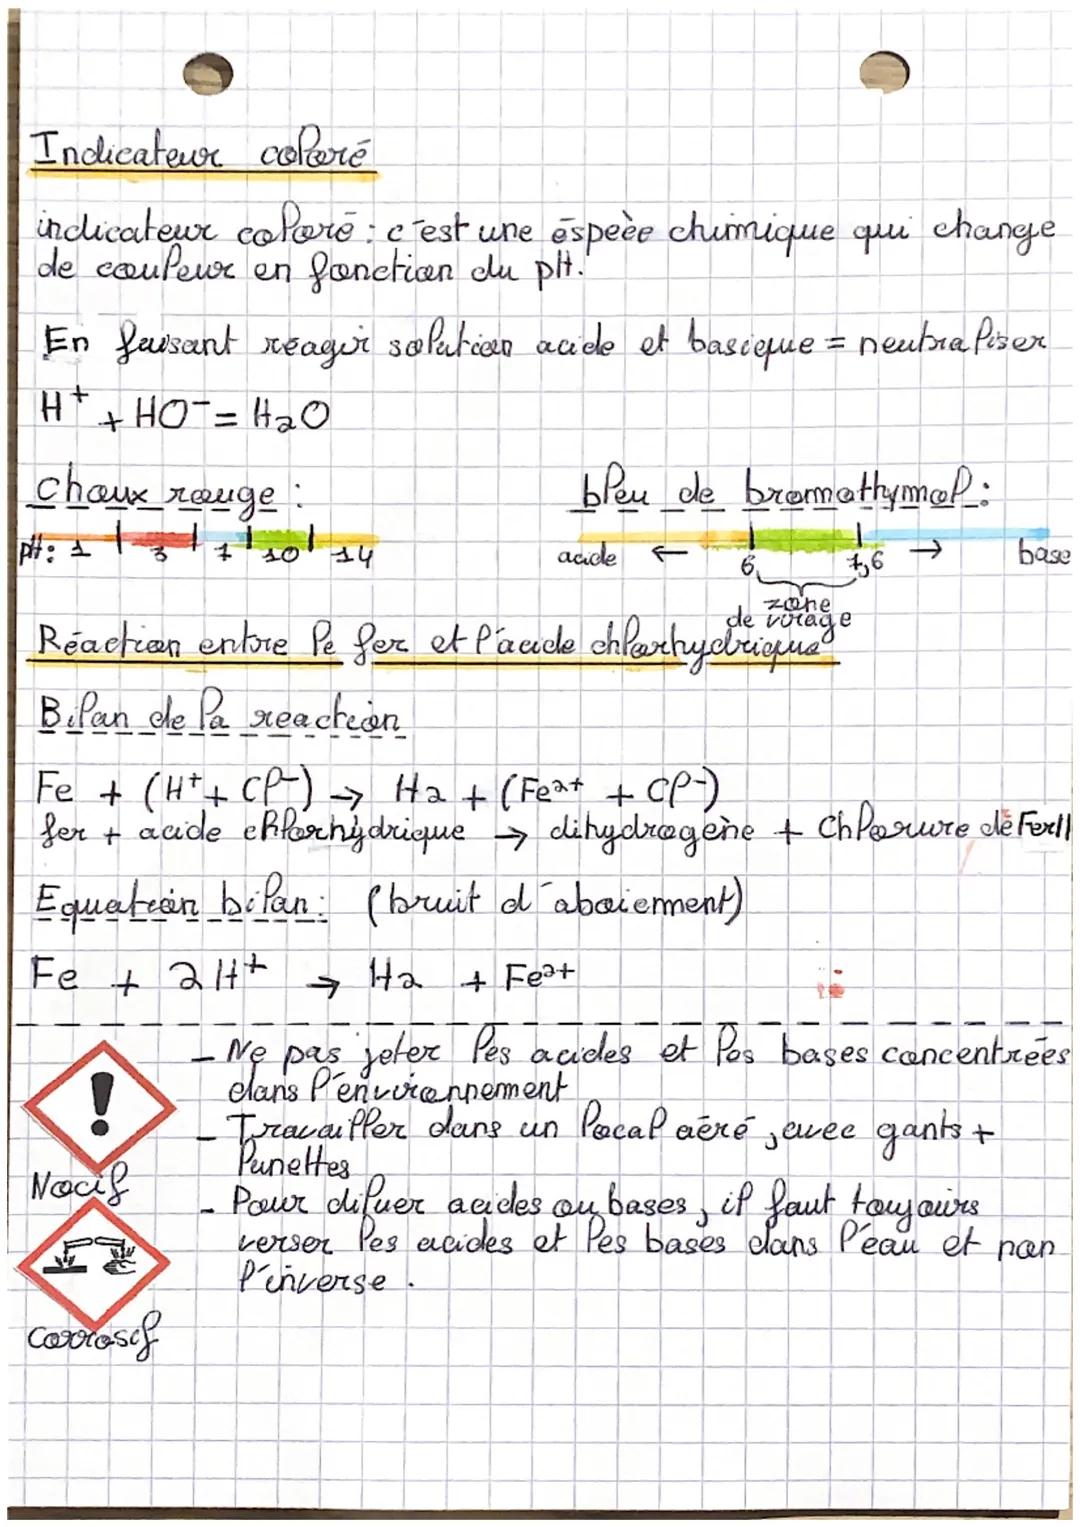 Indicateur coloré
indicateur coloré : c'est une éspeèe chimique qui change
de couleur en fonction du pH.
En faisant réagir solution acide et basique = neutraliser
H⁺ + HO⁻ = H₂O
Choux rouge :
bleu de bromothymol :
pH : 1 3 7 10 14
acide ← 6 7,6 → base
zone
de virage
Réaction entre le fer et l'acide chlorhydrique
Bilan de la reaction
Fe + (H⁺ + Cl⁻) → H₂ + (Fe²⁺ + Cl⁻)
fer + acide chlorhydrique → dihydrogène + Chlorure de Fer II
Equation bilan : (bruit d'aboiement)
Fe + 2H⁺ → H₂ + Fe²⁺
- Ne pas jeter les acides et les bases concentrées
dans l'environnement
- Travailler dans un local aéré, avec gants +
lunettes
Nocif
- Pour diluer acides ou bases, il faut toujours
verser les acides et les bases dans l'eau et non
l'inverse.
Corrosif